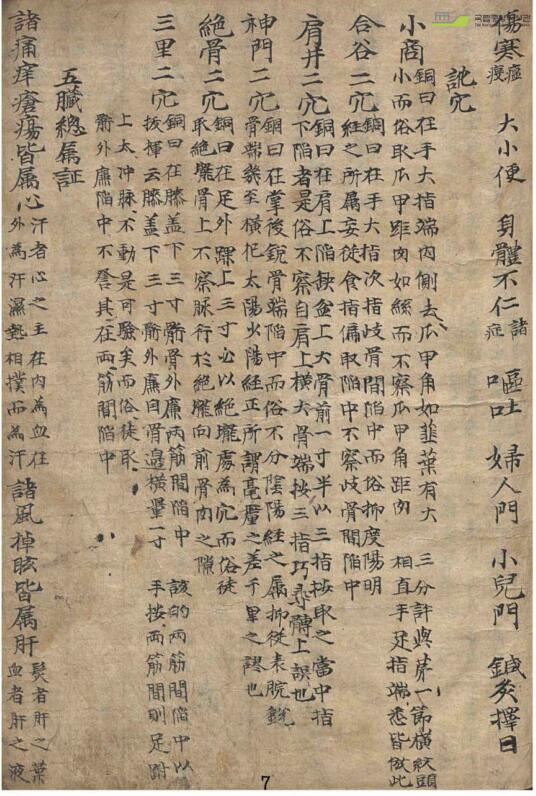 傷寒 瘟疫 大小便 身體不仁 諸症 嘔吐 婦人門 小兒門 鍼灸擇日
訛穴
小商 銅曰在手大指端內側去爪甲角如韮葉有大 三分許與苐一節橫紋頭
小而俗取爪甲距肉如絲而不察爪甲角距肉 相直手足指端悉皆倣此
合谷二穴 銅曰在手大指次指歧骨間陷中而俗抑度陽明
經之所属妄從食指偏取陷中不察歧骨間陷中
肩井二穴 銅曰在肩上陷缺盆上大骨前一寸半以三指按取之當中指
下陷者是俗不察自肩上橫大骨端按三指巧尋髆上誤也
神門二穴 銅曰在掌後銳骨端陷中而俗不分陰陽經之属抑從表腕銳
骨端幾至橫犯太陽少陽經正所謂毫釐之差千里之謬也
絶骨二穴 銅曰在足外踝上三寸必以絶壠處為穴而俗徒
取絶壠骨上不察脉行於絶壠向前骨肉之隙
三里二穴 銅曰在膝盖下三寸䯒骨外廉兩筋間陷中 該的兩筋間陷中以
拔揮云膝盖下三寸䯒外廉自骨邉橫量一寸 手按兩筋間則足跗
上太冲脉不動是可驗矣而俗徒取
䯒外廉陷中不詧其在兩筋間陷中
五臓總属証
諸痛痒瘡瘍皆属心 汗者心之主在内為血在 外為汗濕熱相摶而為汗 諸風掉眩皆属肝 髮者肝之葉 血者肝之液
7